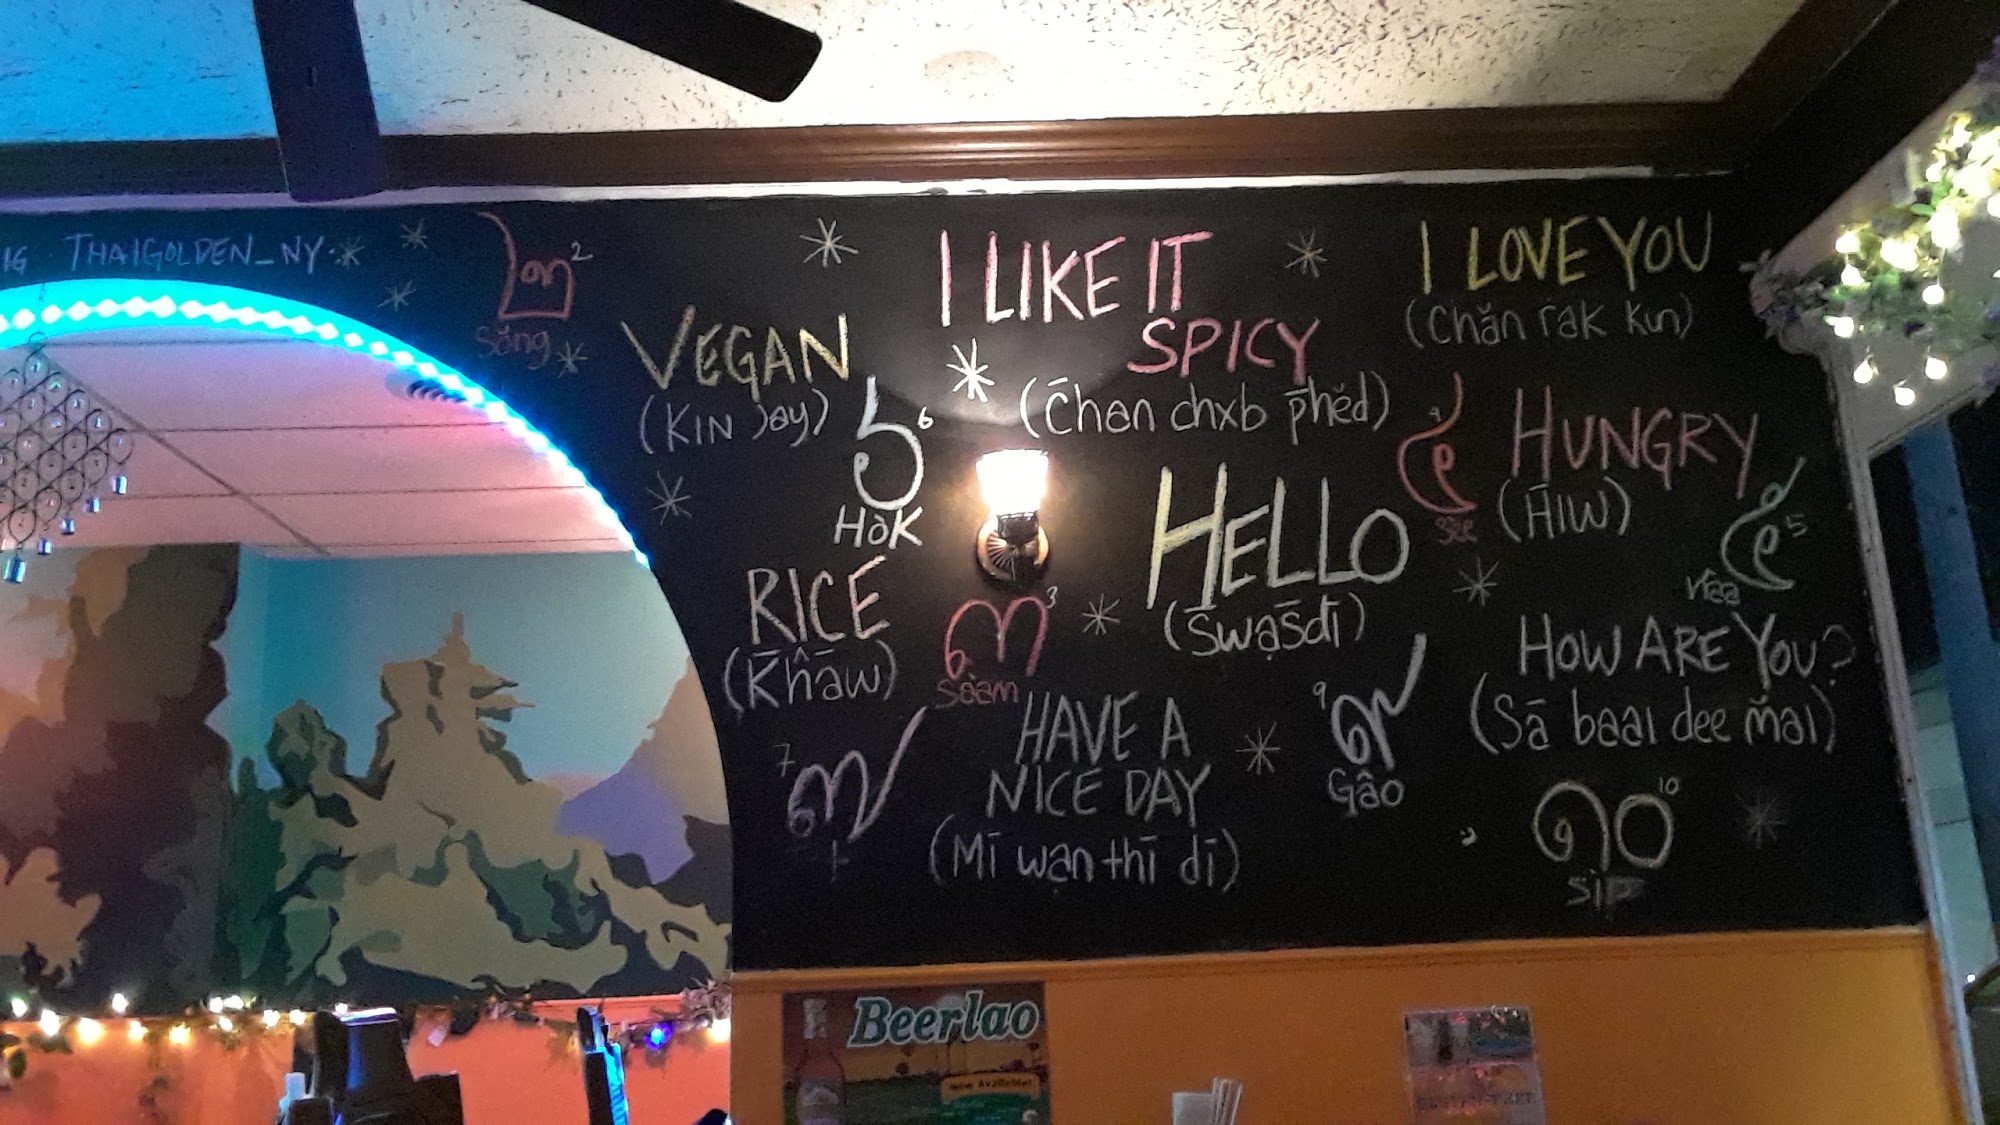 IG THAIGOLDEN_NY
๒ 2
Săng
VEGAN
(KIN Jay)
๖ 6
Hòk
I LIKE IT
SPICY
(C̄han chxb p̄hĕd)
I LOVE YOU
(Chăn rak Kun)
๔ 4
See
HUNGRY
(H̄IW)
๕ 5
HELLO
(S̄wạs̄dī)
RICE
(K̄ĥāw)
๓ 3
Sàam
HOW ARE YOU?
(Sā baai dee m̌ai)
7 ๗
HAVE A
NICE DAY
(Mī wạn thī dī)
9 ๙
Gâo
๑๐ 10
sìp
Beerlao
Now Available!